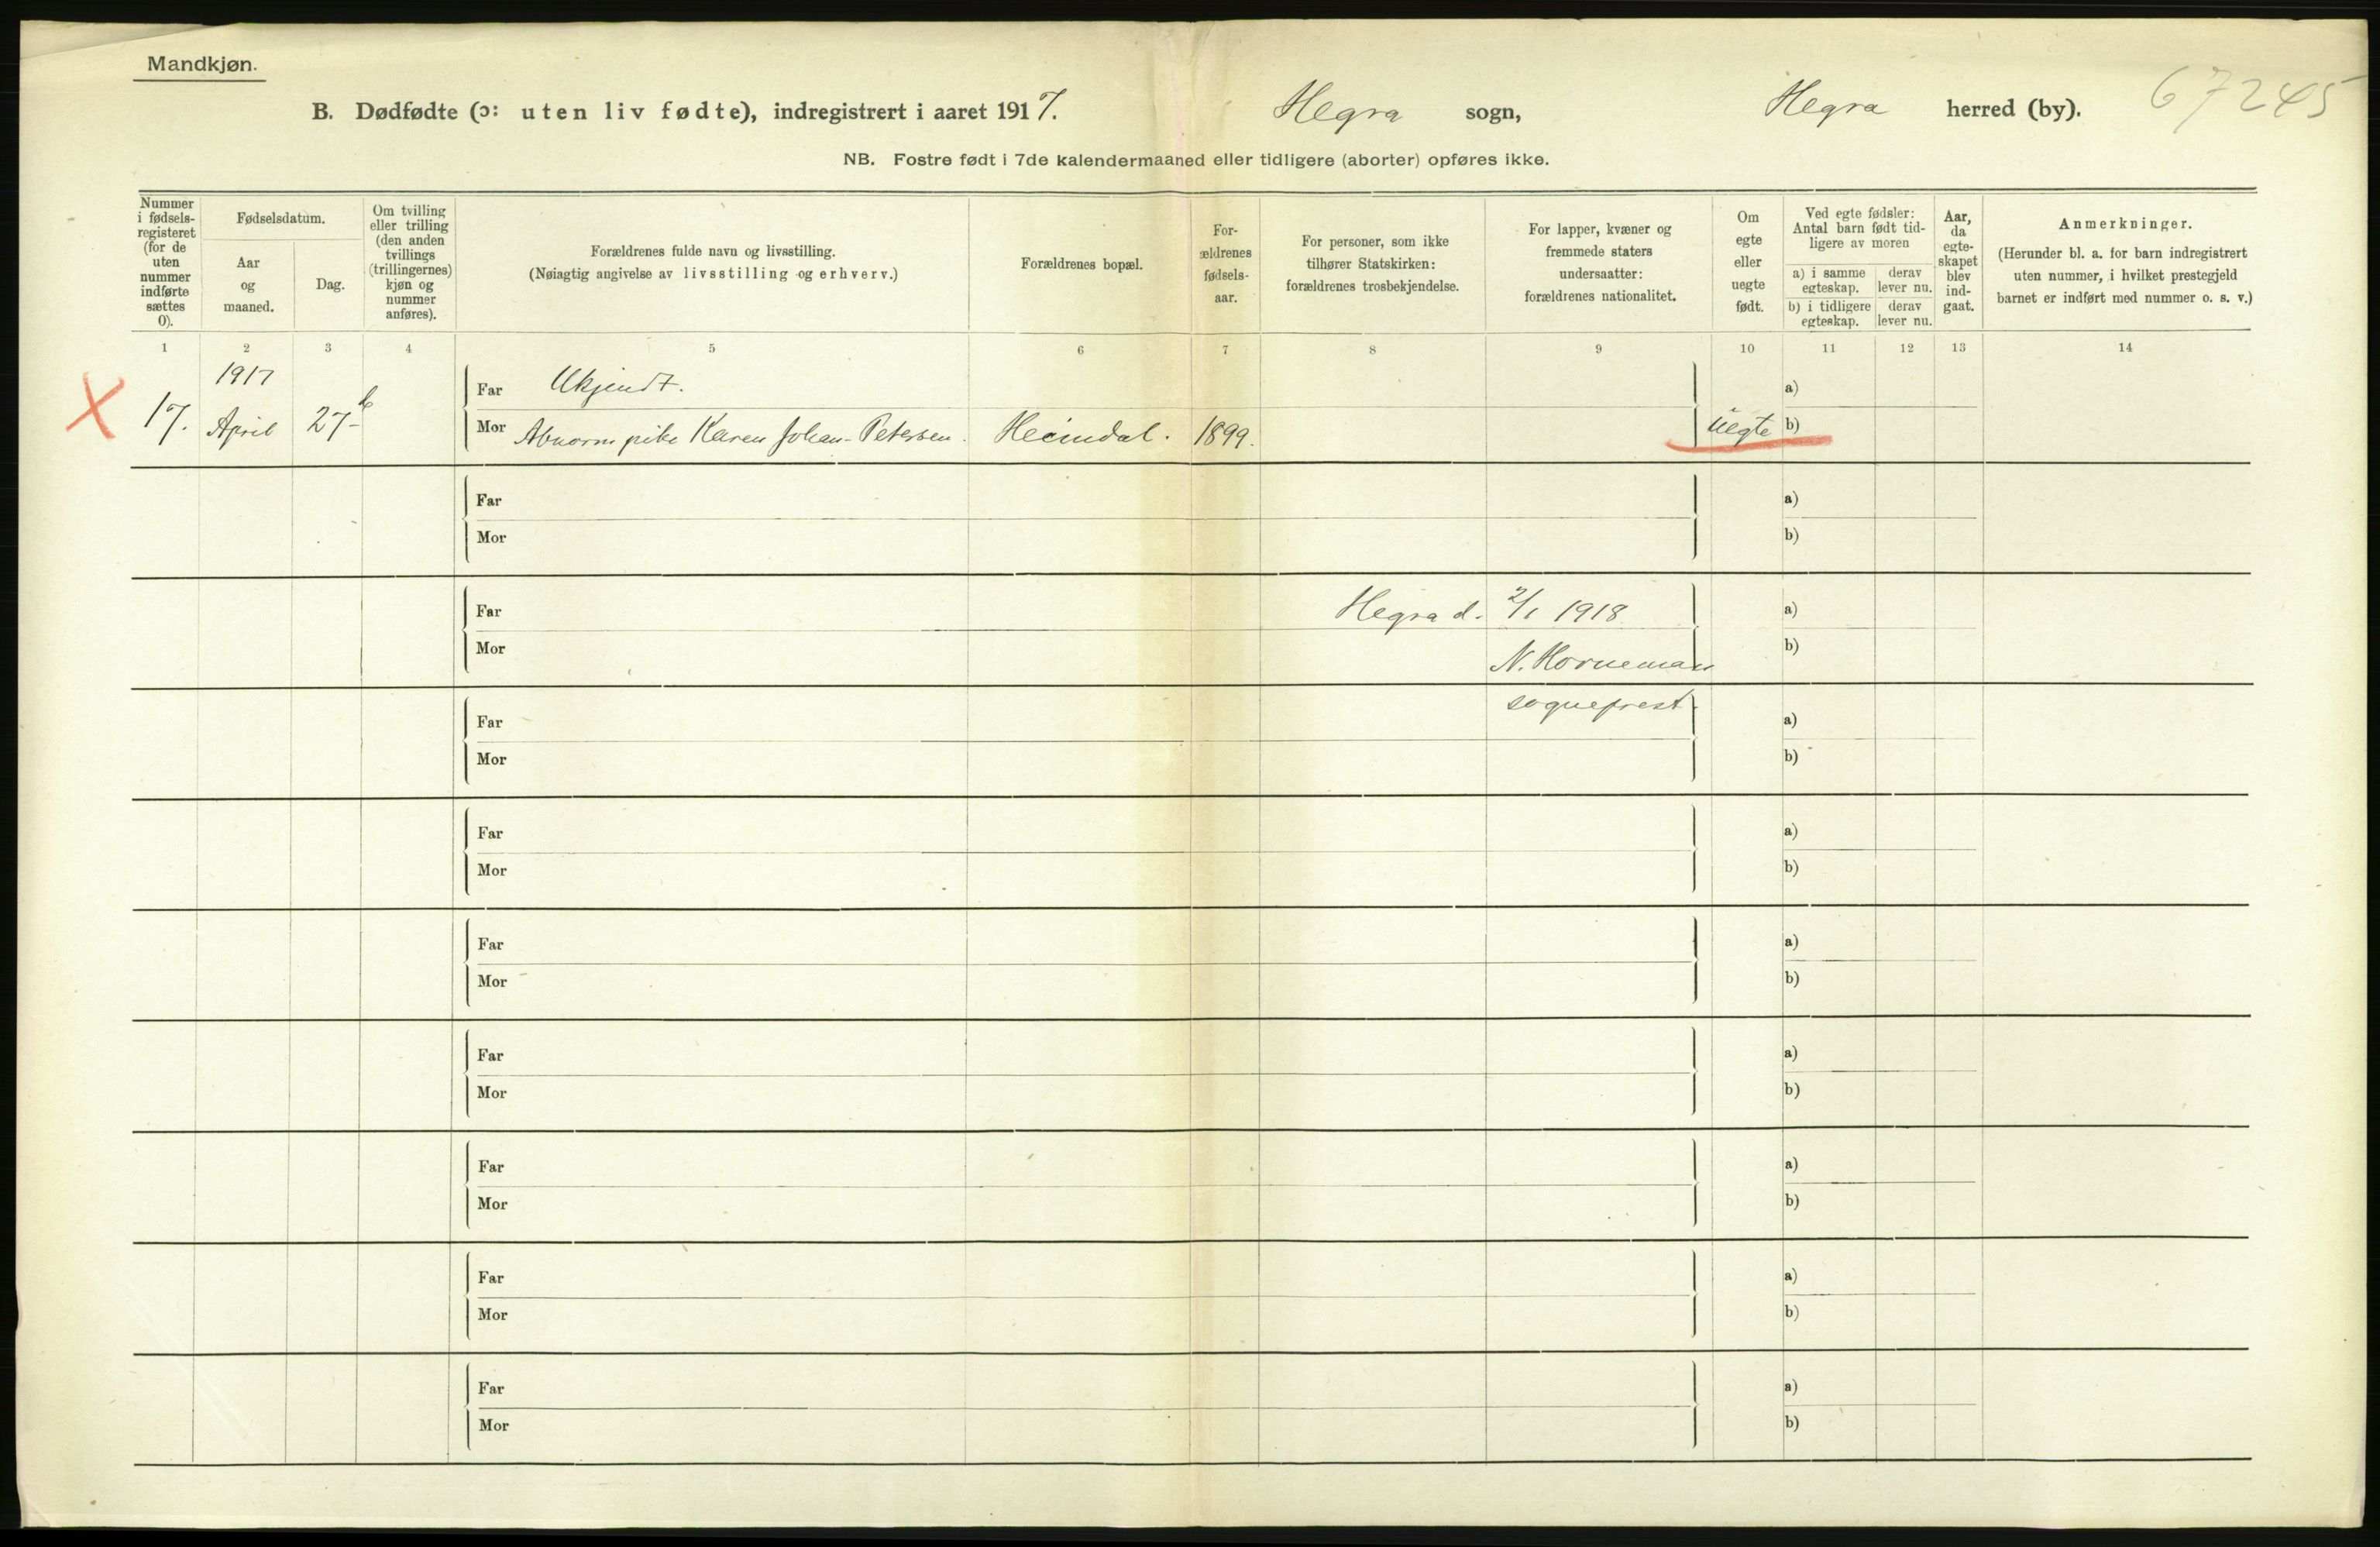 Mandkjøn.
B. Dødfødte (ɔ: uten liv fødte), indregistrert i aaret 1917. Hegra sogn, Hegra herred (by). 67245
NB. Fostre født i 7de kalendermaaned eller tidligere (aborter) opføres ikke.
Nummer i fødsels-registeret (for de uten nummer indførte sættes 0).
Fødselsdatum.
Aar og maaned.
Dag.
Om tvilling eller trilling (den anden tvillings (trillingernes) kjøn og nummer anføres).
Forældrenes fulde navn og livsstilling.
(Nøiagtig angivelse av livsstilling og erhverv.)
Forældrenes bopæl.
For-ældrenes fødsels-aar.
For personer, som ikke tilhører Statskirken: forældrenes trosbekjendelse.
For lapper, kvæner og fremmede staters undersaatter: forældrenes nationalitet.
Om egte eller uegte født.
Ved egte fødsler: Antal barn født tid-ligere av moren
a) i samme egteskap.
derav lever nu.
b) i tidligere egteskap.
derav lever nu.
Aar, da egte-skapet blev ind-gaat.
Anmerkninger.
(Herunder bl. a. for barn indregistrert uten nummer, i hvilket prestegjeld barnet er indført med nummer o. s. v.)
1 2 3 4 5 6 7 8 9 10 11 12 13 14
1917
Far Ukjendt. a)
17. April 27 Mor Abnorm pike Karen Johan-Petersen. Heimdal. 1899. Uegte b)
Far a)
Mor b)
Far Hegra d. 2/1 1918 a)
Mor N. Horneman b)
sogneprest
Far a)
Mor b)
Far a)
Mor b)
Far a)
Mor b)
Far a)
Mor b)
Far a)
Mor b)
Far a)
Mor b)
Far a)
Mor b)